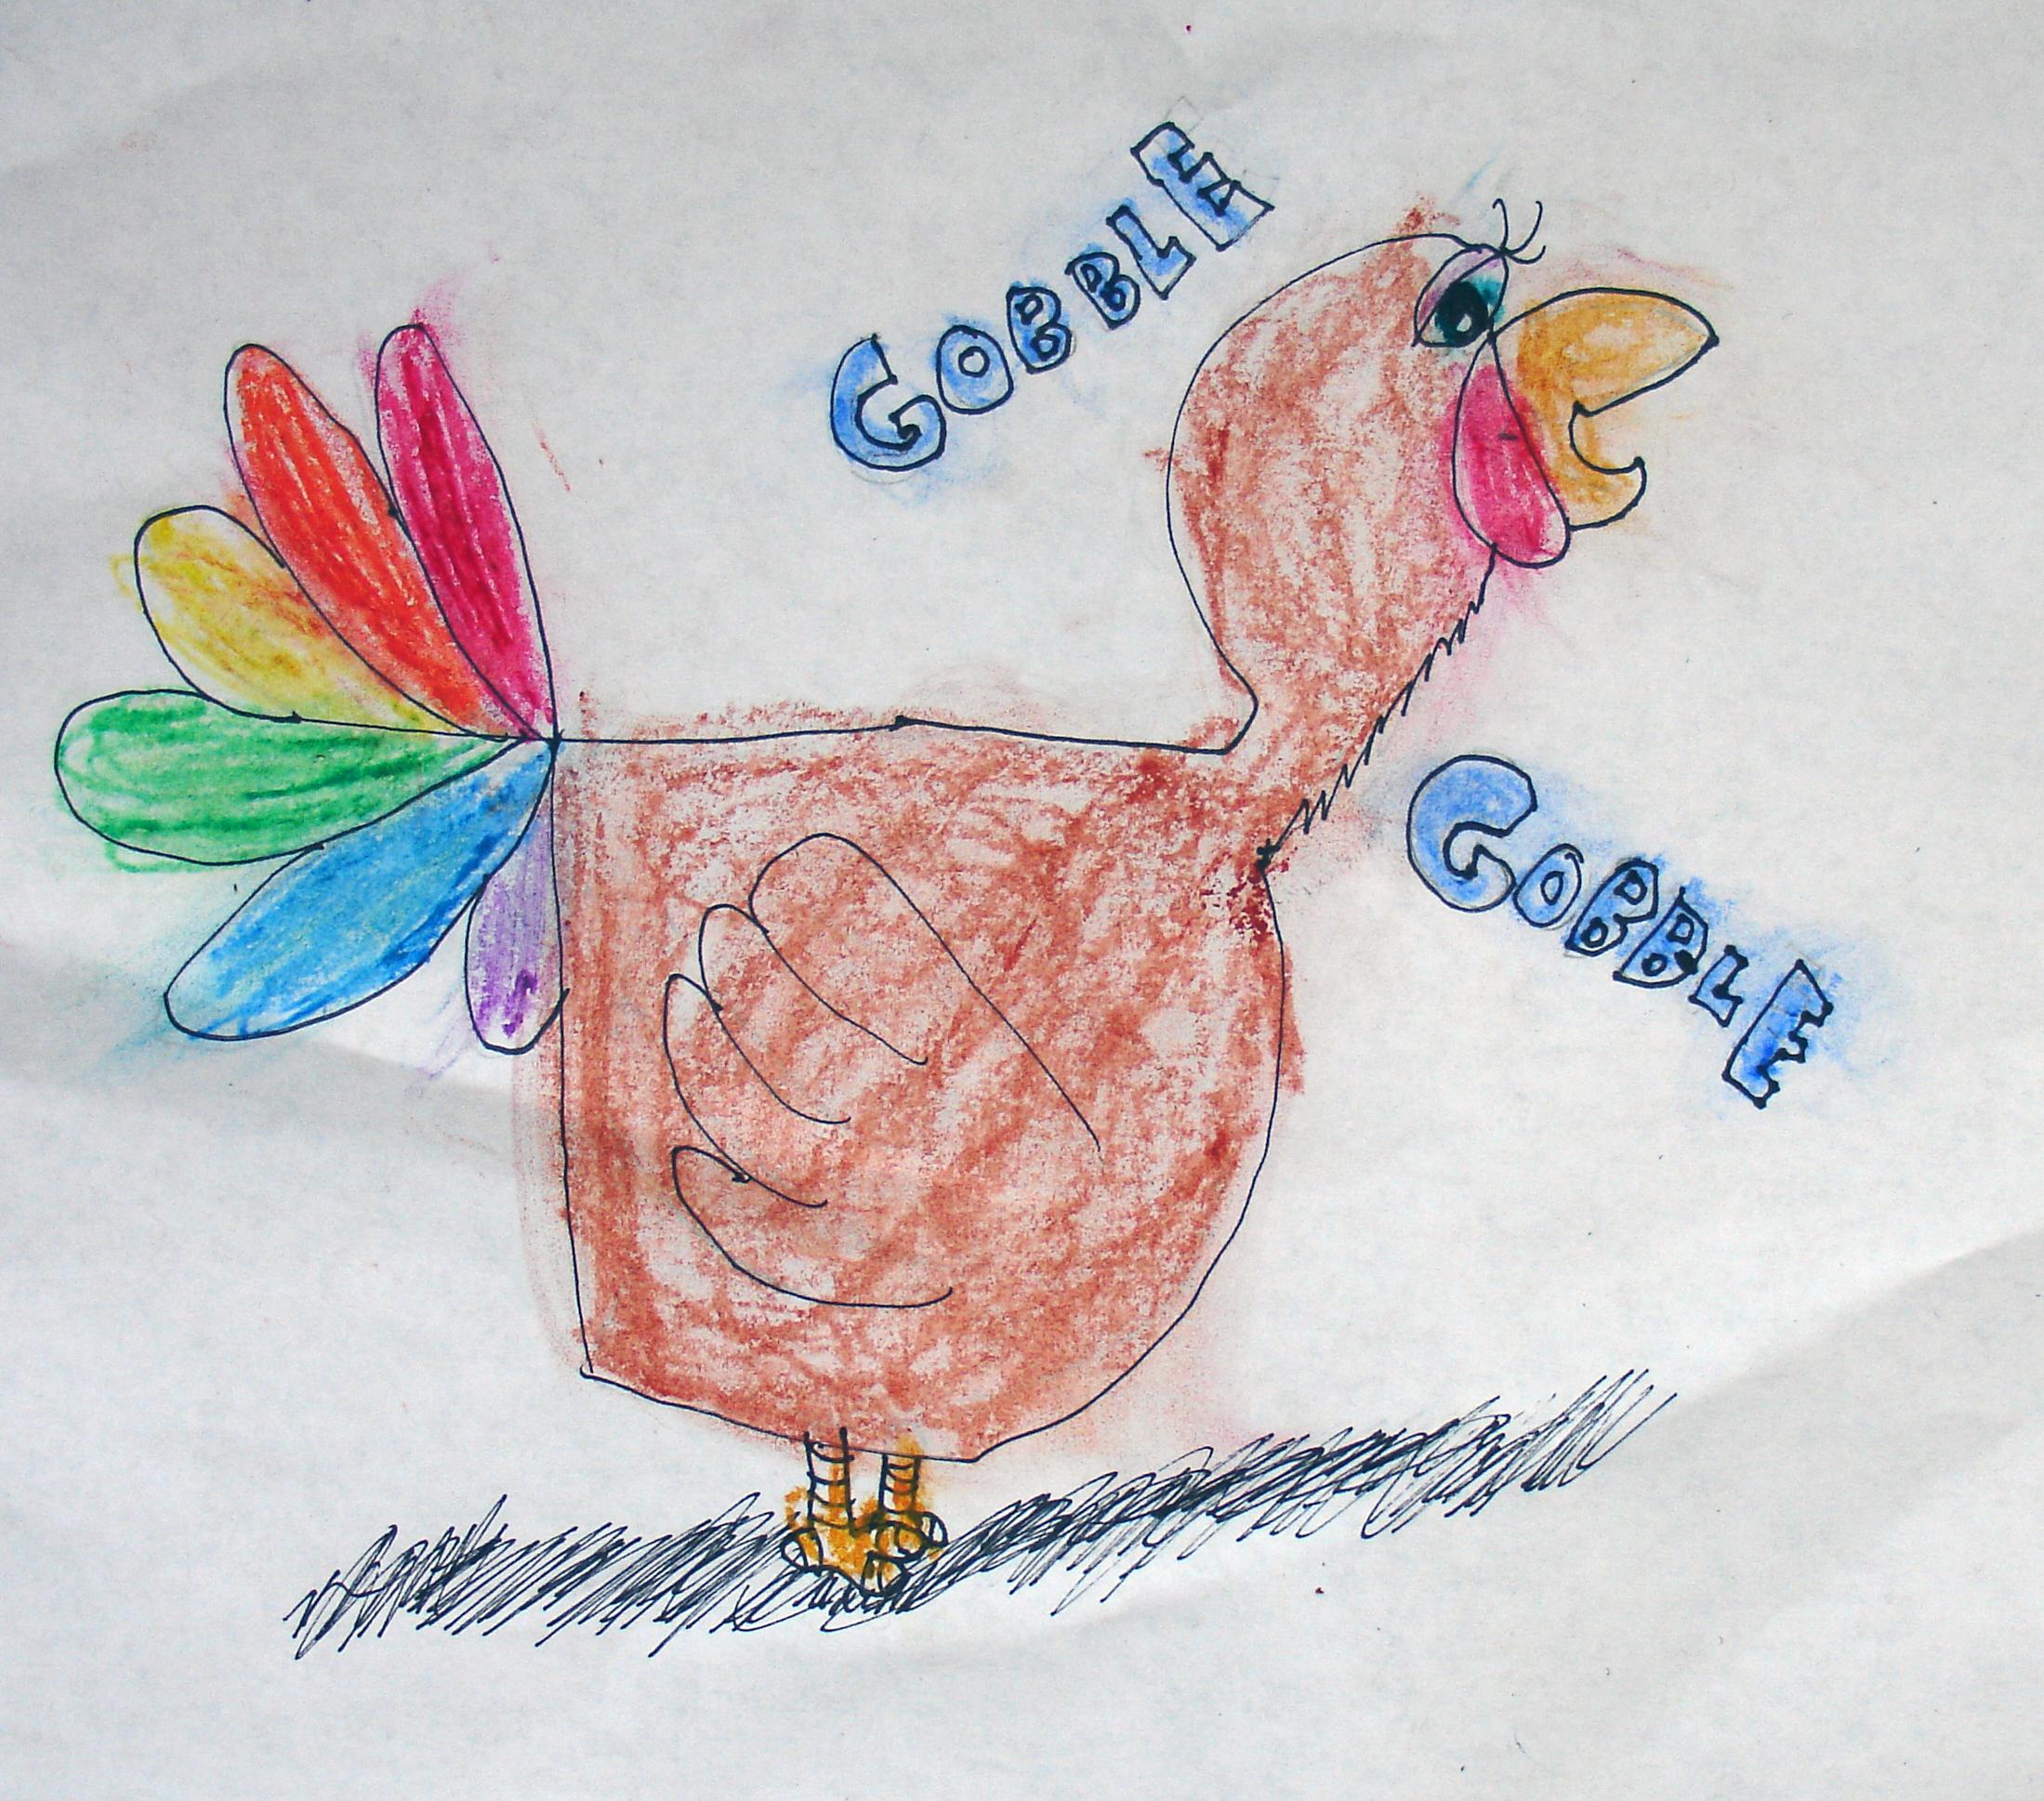 GOBBLE
GOBBLE